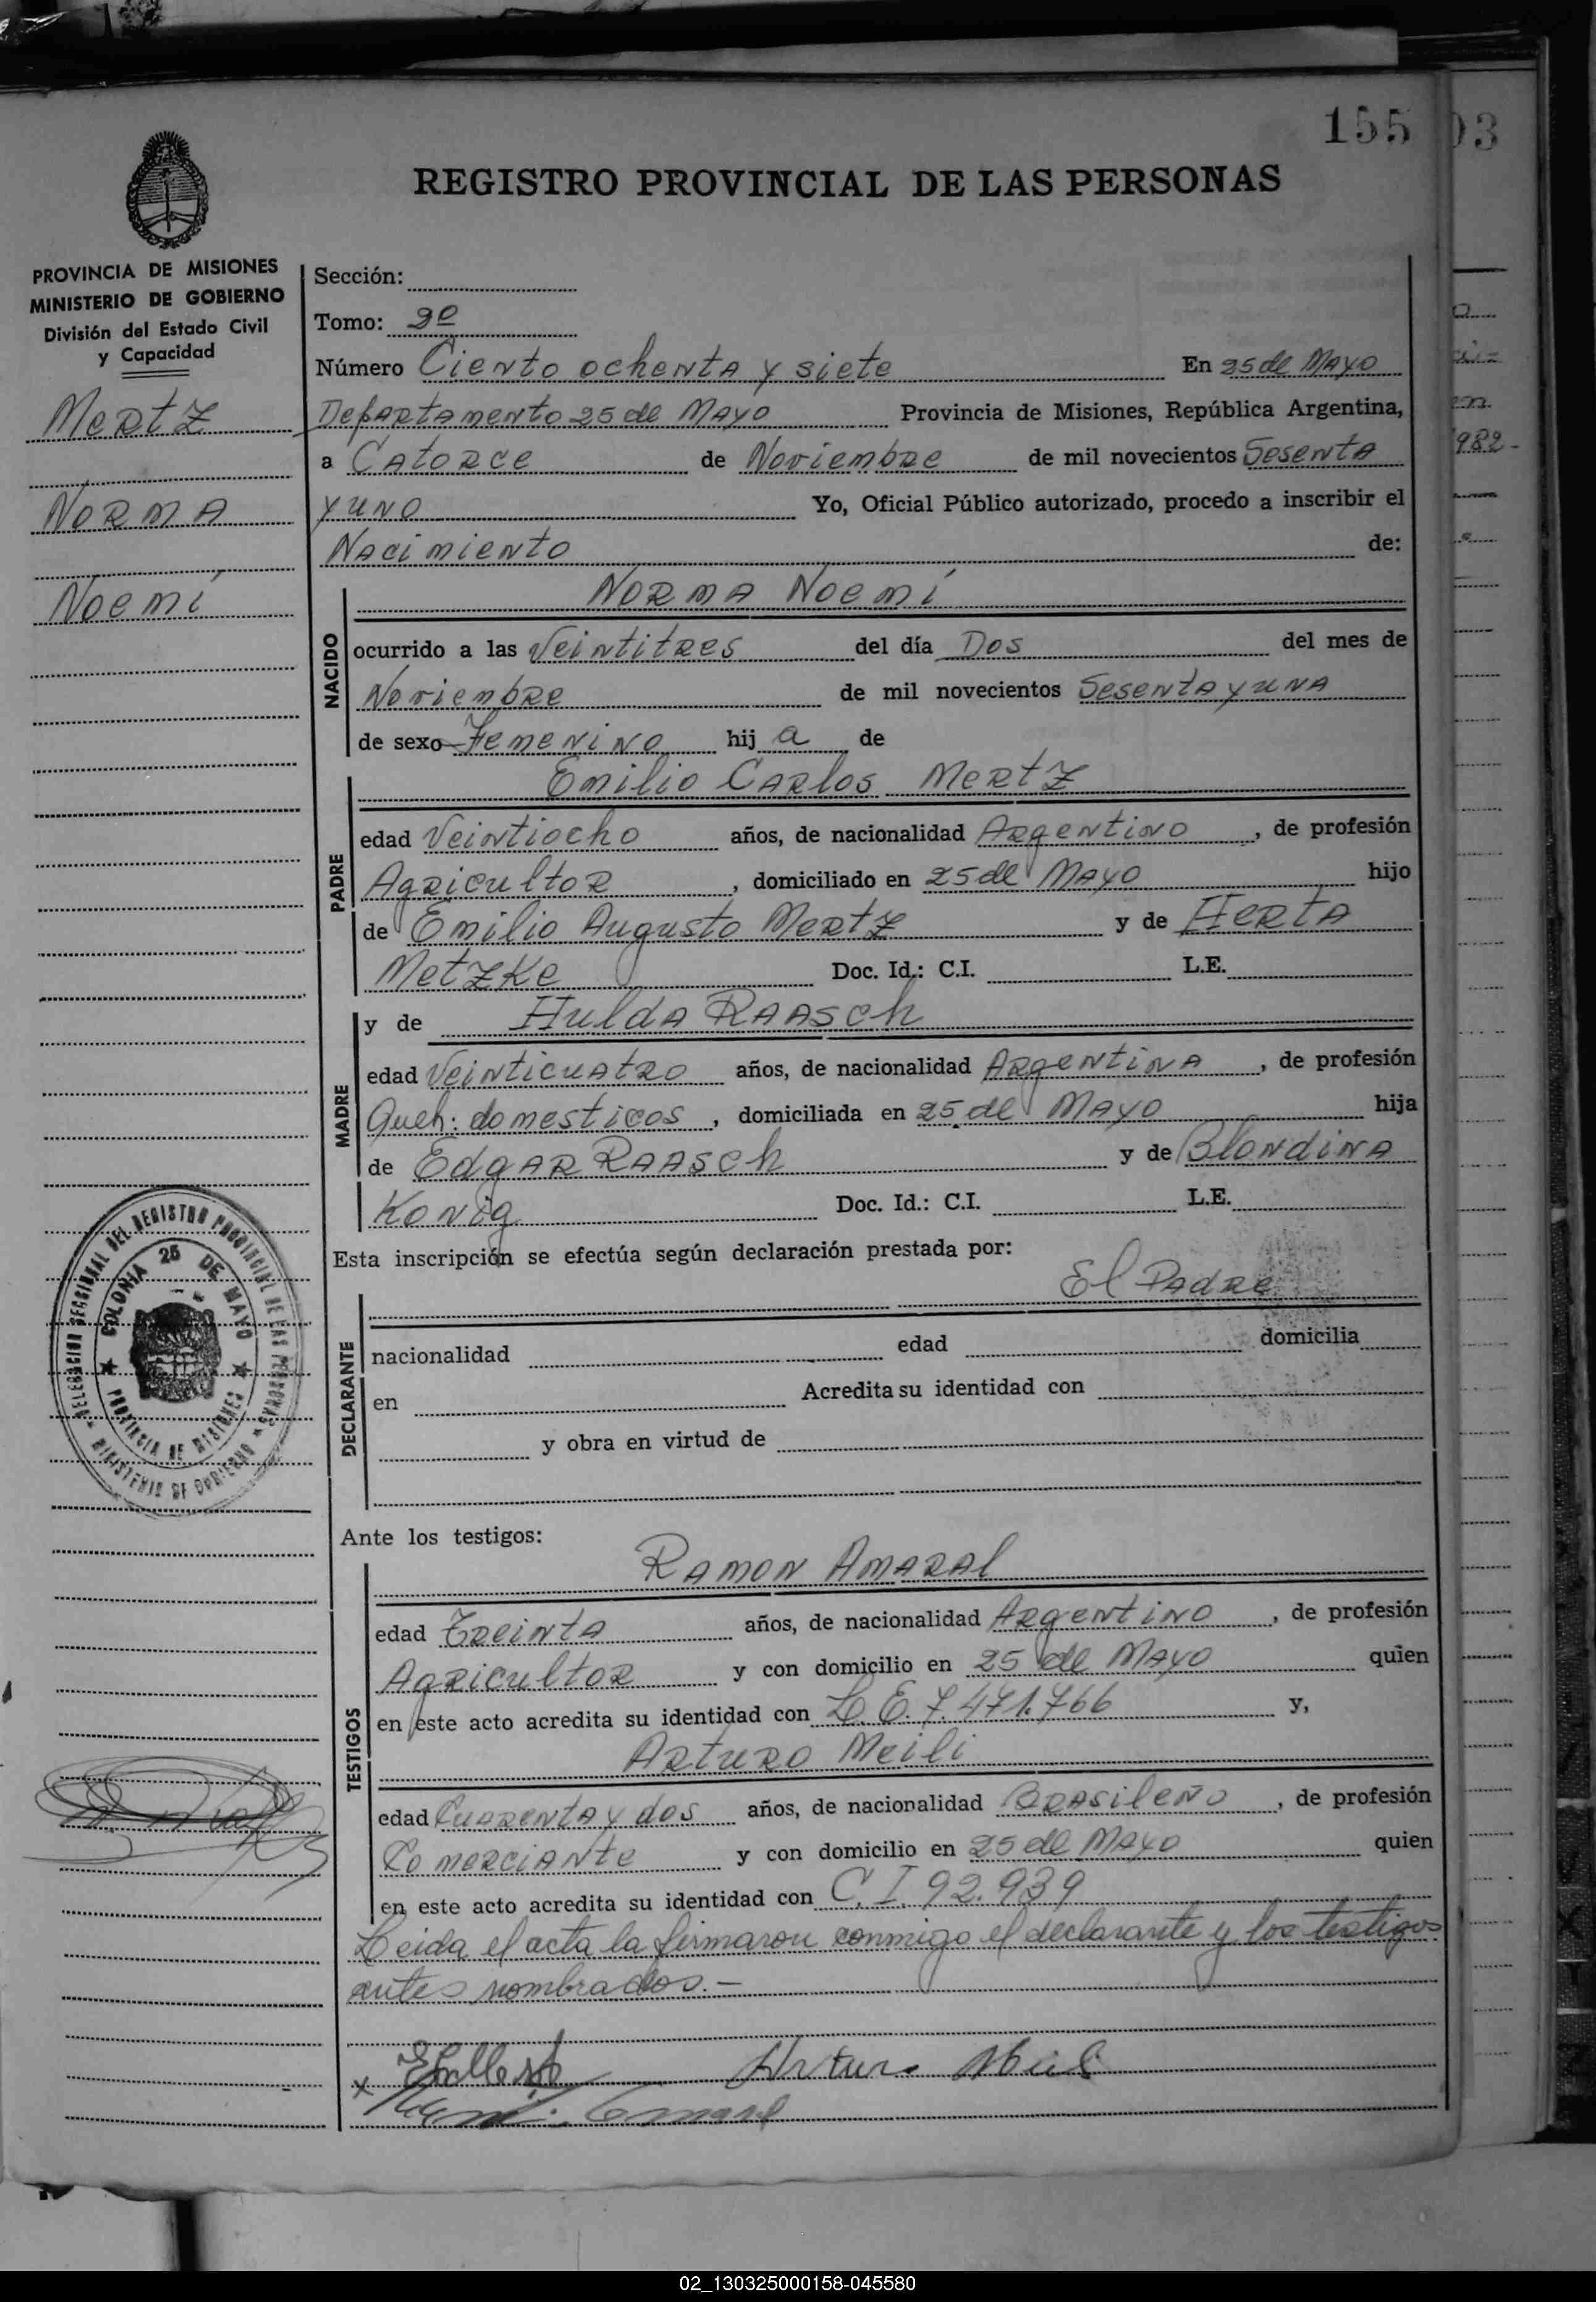 155
03
REGISTRO PROVINCIAL DE LAS PERSONAS
PROVINCIA DE MISIONES
MINISTERIO DE GOBIERNO
División del Estado Civil
y Capacidad
Mertz
Norma
Noemí
Sección:
Tomo: 2º
Número Ciento ochenta y siete En 25 de Mayo
Departamento 25 de Mayo Provincia de Misiones, República Argentina,
a Catorce de Noviembre de mil novecientos Sesenta
y uno Yo, Oficial Público autorizado, procedo a inscribir el
Nacimiento de:
NACIDO
Norma Noemí
ocurrido a las Veintitres del día Dos del mes de
Noviembre de mil novecientos Sesenta y una
de sexo Femenino hij a de
PADRE
Emilio Carlos Mertz
edad Veintiocho años, de nacionalidad Argentino, de profesión
Agricultor, domiciliado en 25 de Mayo hijo
de Emilio Augusto Mertz y de Herta
Metzke Doc. Id.: C.I. L.E.
MADRE
y de Hulda Raasch
edad Veinticuatro años, de nacionalidad Argentina, de profesión
Queh: domesticos, domiciliada en 25 de Mayo hija
de Edgar Raasch y de Blondina
Konig Doc. Id.: C.I. L.E.
Esta inscripción se efectúa según declaración prestada por:
El Padre
DECLARANTE
nacionalidad edad domicilia
en Acredita su identidad con
y obra en virtud de
DELEGACION SECCIONAL DEL REGISTRO PROVINCIAL DE LAS PERSONAS
MINISTERIO DE GOBIERNO
COLONIA 25 DE MAYO
PROVINCIA DE MISIONES
Ante los testigos:
TESTIGOS
Ramon Amaral
edad Treinta años, de nacionalidad Argentino, de profesión
Agricultor y con domicilio en 25 de Mayo quien
en este acto acredita su identidad con L.E. 7.471.766 y,
Arturo Meili
edad Cuarenta y dos años, de nacionalidad Brasileño, de profesión
Comerciante y con domicilio en 25 de Mayo quien
en este acto acredita su identidad con C.I. 92.939
Leida el acta la firmaron conmigo el declarante y los testigos
antes nombrados.-
x Arturo Meili
982-
02_130325000158-045580